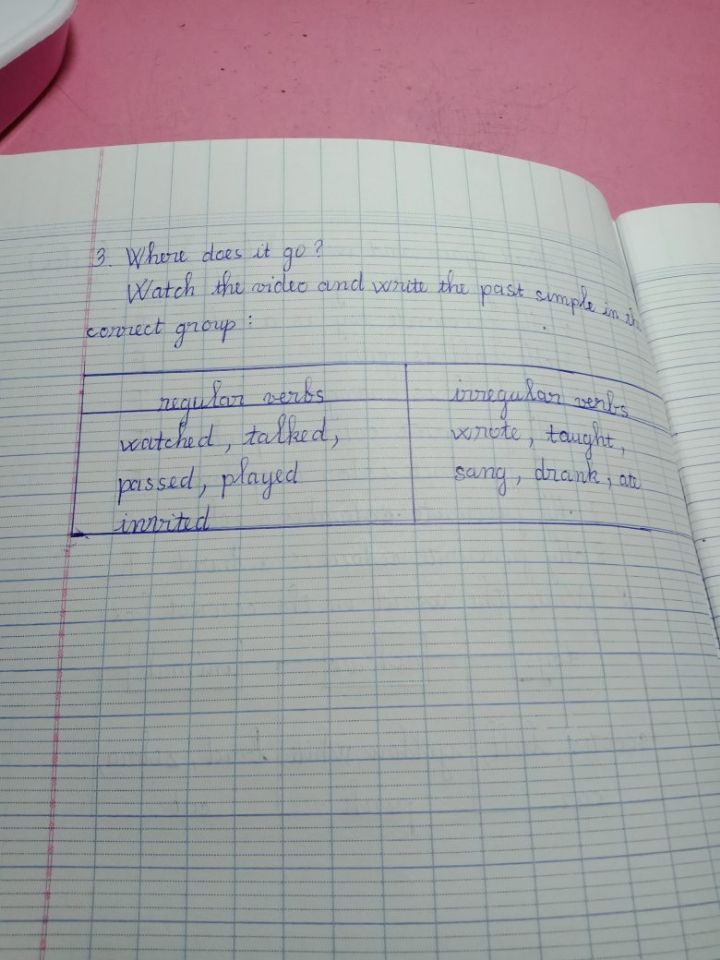 3. Where does it go?
Watch the video and write the past simple in the
correct group :
regular verbs
irregular verbs
watched, talked,
passed, played
invited
wrote, taught,
sang, drank, ate